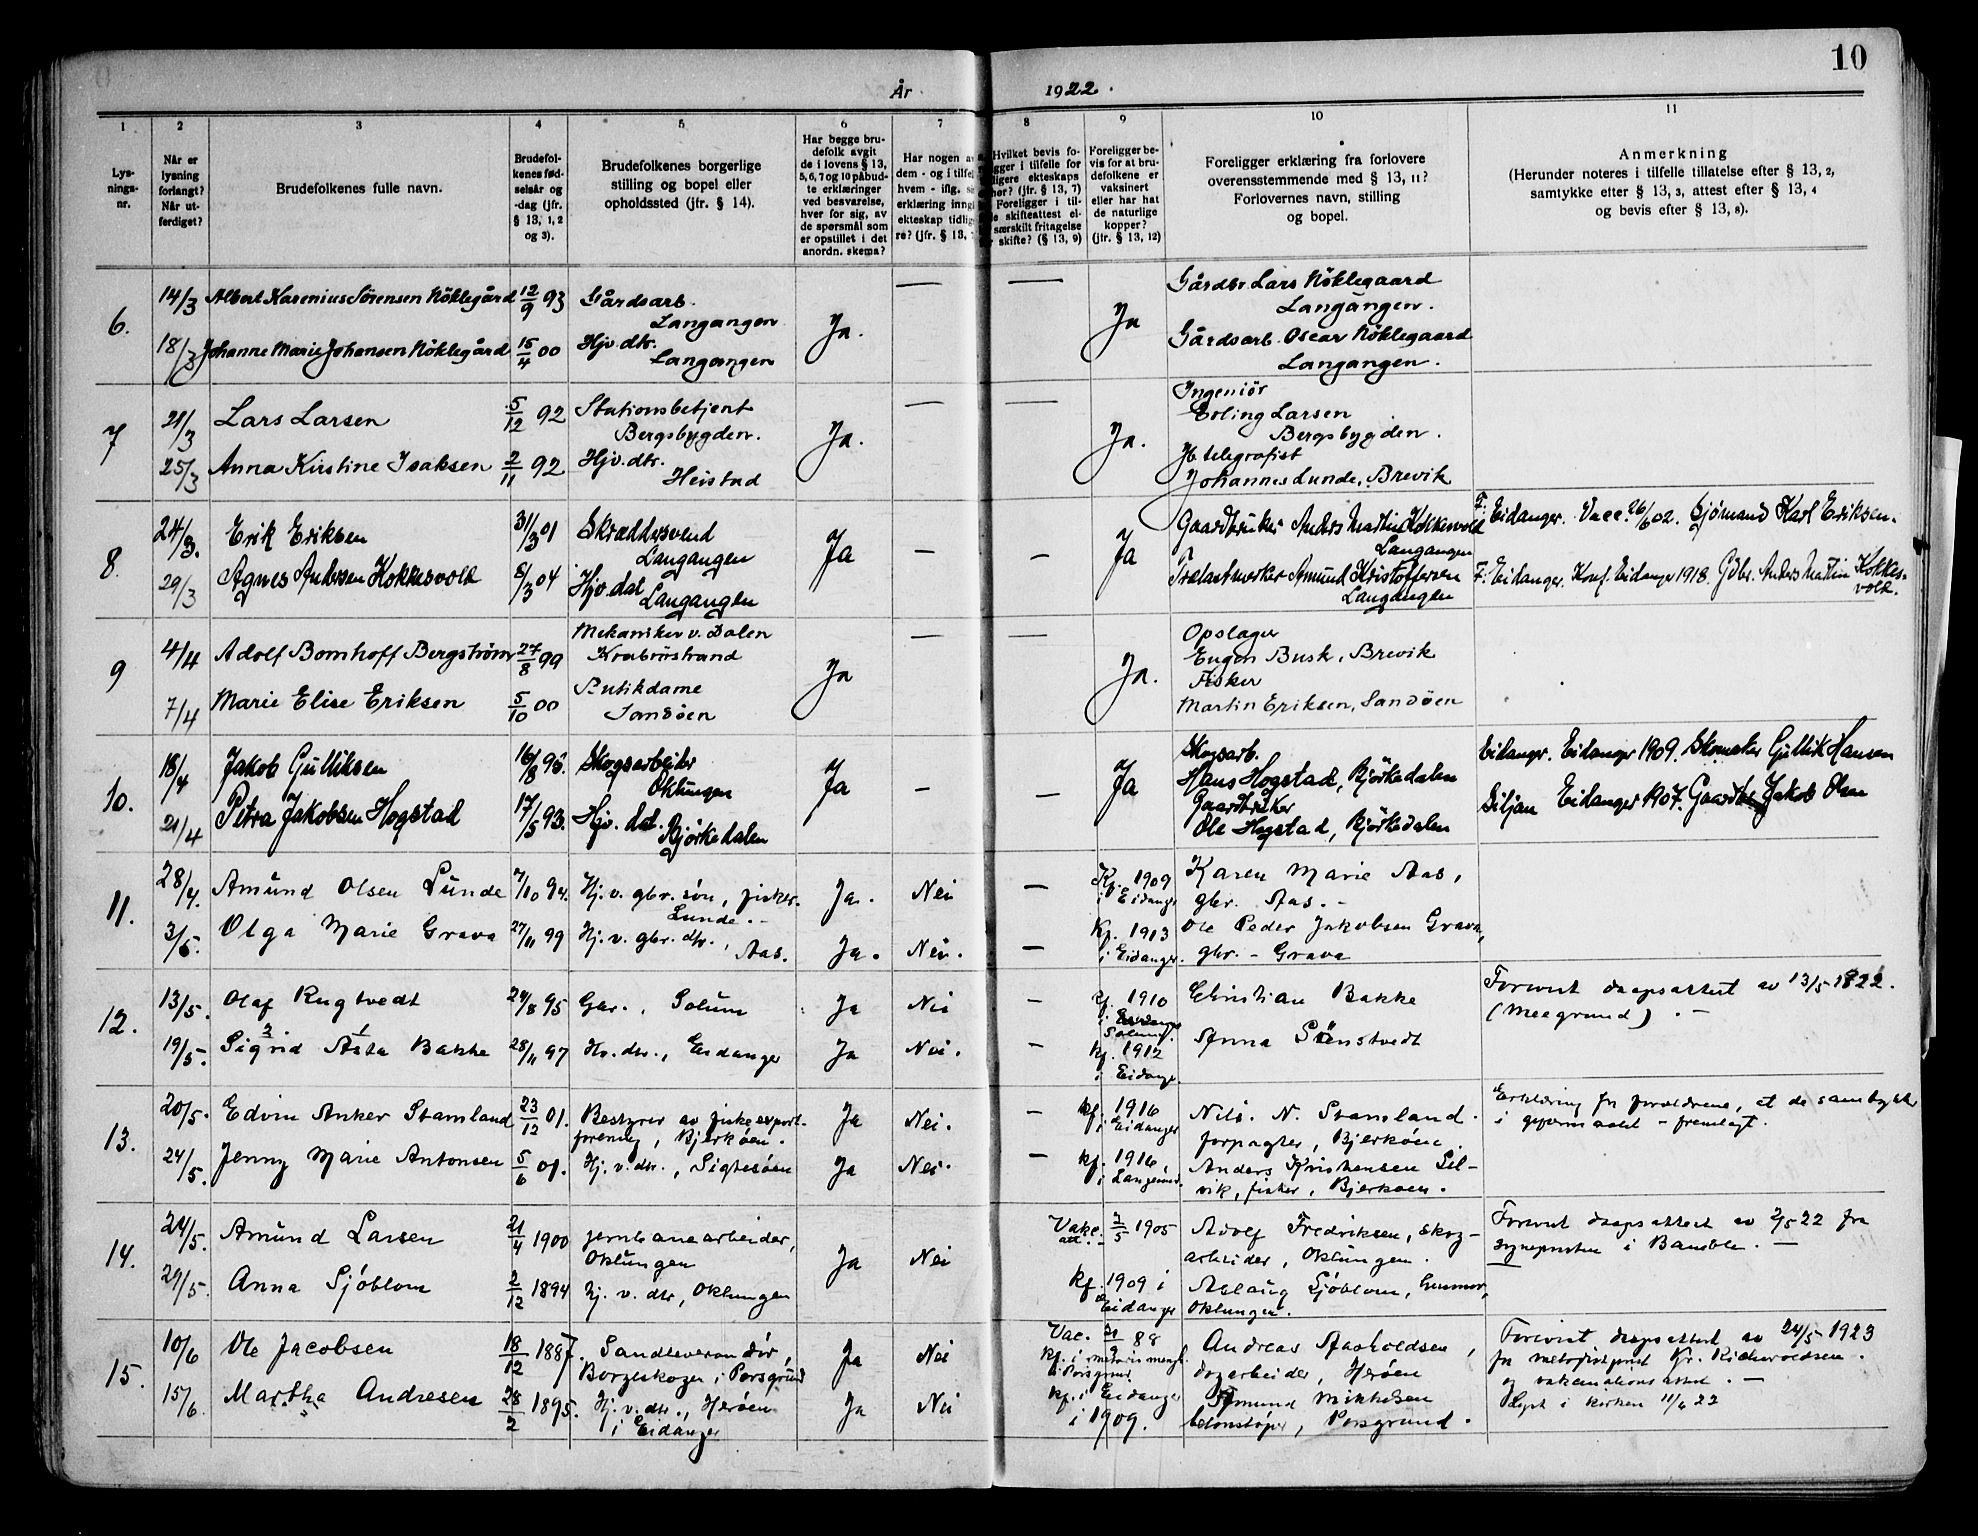 10
År 1922.
1 2 3 4 5 6 7 8 9 10 11
Lys-
nings-
nr.
Når er
lysning
forlangt?
Når ut-
ferdiget?
Brudefolkenes fulle navn.
Brudefol-
kenes fød-
selsår og
-dag (jfr.
§ 13, 1, 2
og 3).
Brudefolkenes borgerlige
stilling og bopel eller
opholdssted (jfr. § 14).
Har begge bru-
defolk avgit
de i lovens § 13,
5, 6, 7 og 10 påbud-
te erklæringer
ved besvarelse,
hver for sig, av
de spørsmål som
er opstillet i det
anordn. skema?
Har nogen av
dem - og i tilfel
hvem - iflg.
erklæring inng
ekteskap tidlig
re? (jfr. § 13,
Hvilket bevis fo-
ligger i tilfelle for
ligere ekteskaps
hør? (jfr. § 13, 7)
Foreligger i til-
le skifteattest el-
særskilt fritagelse
skifte? (§ 13, 9)
Foreligger be-
vis for at bru-
defolkene er
vaksinert
eller har hat
de naturlige
kopper?
(jfr. § 13, 12)
Foreligger erklæring fra forlovere
overensstemmende med § 13, 11?
Forlovernes navn, stilling
og bopel.
Anmerkning
(Herunder noteres i tilfelle tillatelse efter § 13, 2,
samtykke efter § 13, 3, attest efter § 13, 4
og bevis efter § 13, 8).
6. 14/3 Albert Karenius Sørensen Nøklegård 12/9 93 Gårdsarb. Langangen Ja. — — Ja Gårdbr. Lars Nøklegaard
Langangen.
18/3 Johanne Marie Johansen Nøklegård 15/4 00 Hjv. dtr. Langangen Gårdsarb. Oscar Nøklegaard
Langangen.
7 21/3 Lars Larsen 5/12 92 Stationsbetjent Bergsbygden. Ja. — — Ja. Ingeniør
Erling Larsen
Bergsbygden.
25/3 Anna Kirstine Isaksen 2/11 92 Hjv. dtr. Heistad telegrafist
Johannes Lunde, Brevik
8. 24/3. Erik Eriksen 31/3 01 Skræddersvend Langangen Ja — — Ja Gaardbruker Anders Martin Kokkesvold
Langangen
F: Eidanger. Vacc. 26/6 02. Sjømand Karl Eriksen.
29/3 Agnes Andersen Kokkesvold 8/3 04 Hjv. dat. Langangen Trælastmerker Amund Kristoffersen
Langangen
F: Eidanger. Konf. Eidanger 1918. Gdbr. Anders Martin Kokkes-
vold.
9 4/4 Adolf Bomhoff Bergstrøm 27/8 99 Mekaniker v. Dalen Ja — — Ja. Opslager
Eugen Busk, Brevik
7/4 Marie Elise Eriksen 5/10 00 Butikdame Sandøen Fisker
Martin Eriksen, Sandøen
10. 18/4 Jakob Gulliksen 16/8 95. Skogsarbeider Oklungen Ja — — Ja Skogsarb.
Hans Hogstad, Bjørkedalen
Eidanger. Eidanger 1909. Skomaker Gullik Hansen
21/4 Petra Jakobsen Hogstad 17/5 93. Hjv. dat. Bjørkedalen Gaardbruker
Ole Hogstad, Bjørkedalen
Siljan Eidanger 1907. Gaardbr. Jakob Olsen
11. 28/4. Amund Olsen Lunde 7/10 94. Hj. v. gbr. søn, fisker. Lunde. - Ja. Nei — Kf. 1909
i Eidanger
Karen Marie Aas,
gbr. Aas. -
3/5. Olga Marie Grava 27/11 99 Hj. v. gbr. dtr., Aas. Ja. Nei. — Kf. 1913
i Eidanger.
Ole Peder Jakobsen Grava,
gbr. - Grava
12. 13/5. Olaf Rugtvedt 24/8 95 Gbr., Solum Ja Nei — kf. 1910
Solum.
Christian Bakke
Forevist daapsattest av 13/5 1822.
19/5. Sigrid Asta Bakke 28/11 97 Hv. dtr., Eidanger Ja Nei. — kf. 1912
i Eidanger.
Anna Sønstvedt
13. 20/5. Edvin Anker Stamland 23/12 01. Bestyrer av fiskeexport-
forening, Bjerkøen. Ja Nei. — kf. 1916
i Eidanger
Nils. N. Stamland.
forpagter, Bjerkøen.
Erklæring fra forældrene, at de samtykker
i giftermaalet - fremlagt.
24/5. Jenny Marie Antonsen 5/6 01. Hj. v. dtr., Sigtesøen Ja Nei. — kf. 1916,
i Langesund.
Anders Kristensen Sil-
vik, fisker, Bjerkøen.
14. 24/5. Amund Larsen 21/4 1900 jernbanearbeider,
Oklungen Ja Nei Vakc.
att. 2/5 1905
Adolf Fredriksen, skog-
arbeider, Oklungen.
Forevist daapsattest av 2/5 22 fra
sogneprsten i Bamble. —
29/5. Anna Sjöblom 2/12 1894 hj. v. dtr, Oklungen kf. 1909 i
Eidanger
Aslaug Sjöblom,
Oklungen.
15. 10/6 Ole Jacobsen 18/12 1887. Sandleverandør,
Borgeskogen i Porsgrund Ja Nei Vac. 88
kf. i metodistmengh.
i Porsgrund.
Andreas Aasoldsen,
dagarbeider, Herøen
Forevist daapsattest av 24/5 1923
fra metodistprest Kr.
og vakcinationsattest. —
15/6 Martha Andresen 28/2 1895. Hj. v. dtr., Herøen
i Eidanger Ja Nei kf. i Eidanger
i 1909.
Amund Mikkelsen
betonstøper, Porsgrund.
Lyst i kirken 11/6 22